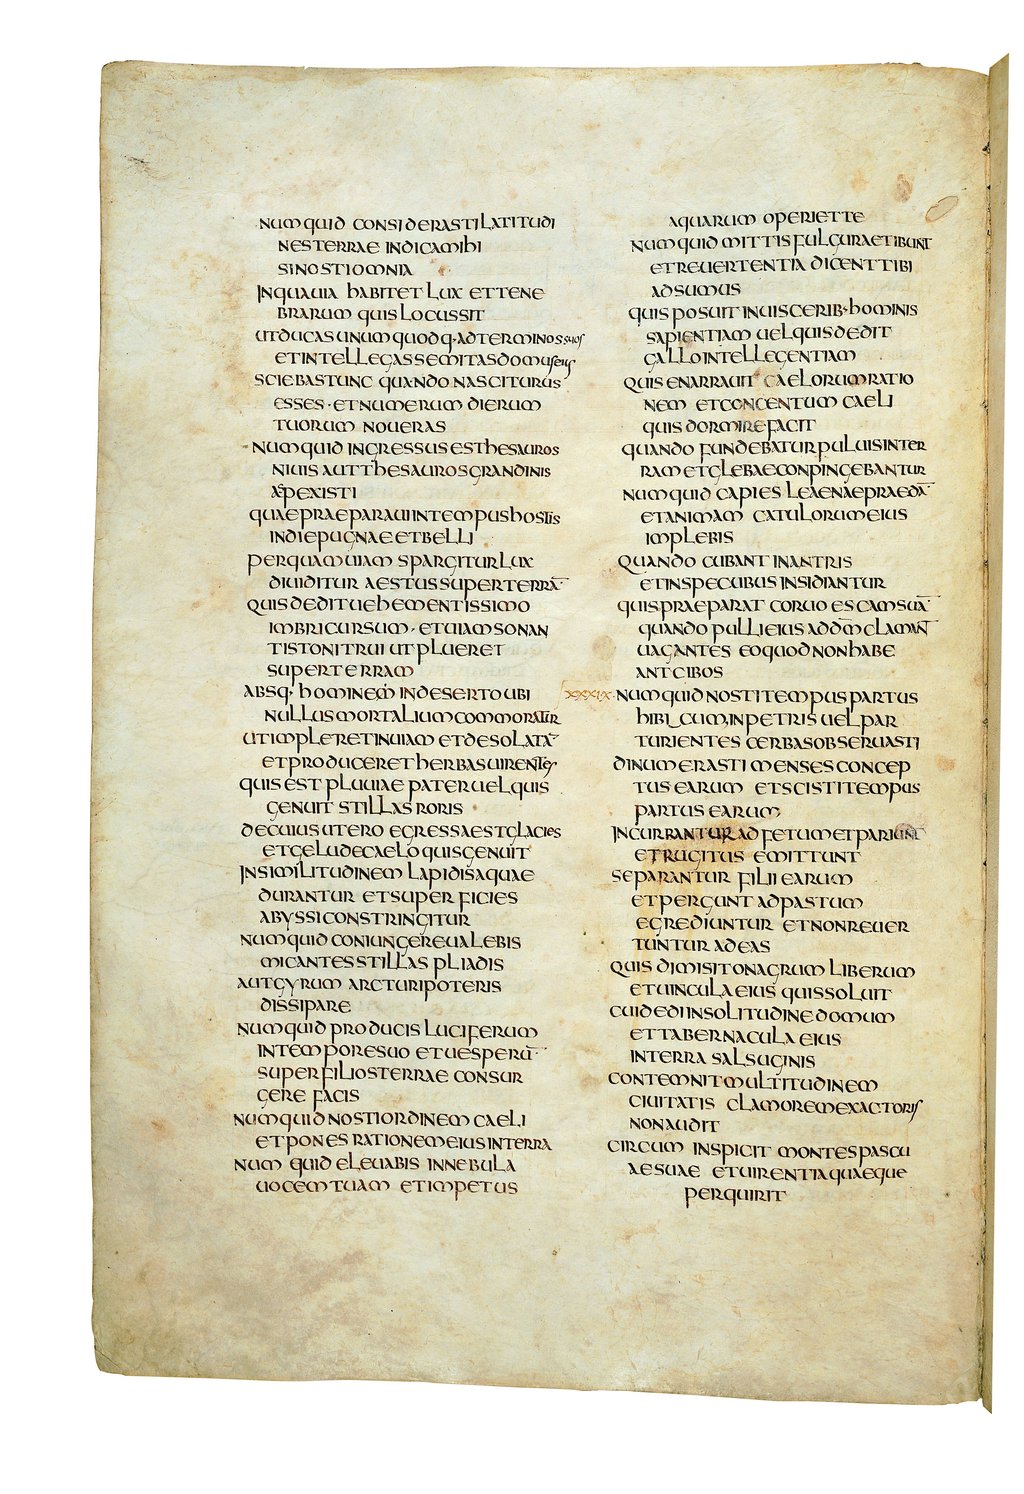 NUMQUID CONSIDERASTI LATITUDI
NES TERRAE INDICA MIHI
SI NOSTI OMNIA
IN QUA UIA HABITET LUX ET TENE
BRARUM QUIS LOCUS SIT
UT DUCAS UNUMQUODQ· AD TERMINOS SUOS
ET INTELLEGAS SEMITAS DOMUS EIUS
SCIEBAS TUNC QUANDO NASCITURUS
ESSES· ET NUMERUM DIERUM
TUORUM NOUERAS
NUMQUID INGRESSUS ES THESAUROS
NIUIS AUT THESAUROS GRANDINIS
ASPEXISTI
QUAE PRAEPARAUI IN TEMPUS HOSTIS
IN DIE PUGNAE ET BELLI
PER QUAM UIAM SPARGITUR LUX
DIUIDITUR AESTUS SUPER TERRĀ
QUIS DEDIT UEHEMENTISSIMO
IMBRI CURSUM· ET UIAM SONAN
TIS TONITRUI UT PLUERET
SUPER TERRAM
ABSQ· HOMINEM IN DESERTO UBI
NULLUS MORTALIUM COMMORATUR
UT IMPLERET INUIAM ET DESOLATĀ
ET PRODUCERET HERBAS UIRENTES
QUIS EST PLUUIAE PATER UEL QUIS
GENUIT STILLAS RORIS
DE CUIUS UTERO EGRESSA EST GLACIES
ET GELU DE CAELO QUIS GENUIT
IN SIMILITUDINEM LAPIDIS AQUAE
DURANTUR ET SUPERFICIES
ABYSSI CONSTRINGITUR
NUMQUID CONIUNGERE UALEBIS
MICANTES STILLAS PLIADIS
AUT GYRUM ARCTURI POTERIS
DISSIPARE
NUMQUID PRODUCIS LUCIFERUM
IN TEMPORE SUO ET UESPERŪ
SUPER FILIOS TERRAE CONSUR
GERE FACIS
NUMQUID NOSTI ORDINEM CAELI
ET PONES RATIONEM EIUS IN TERRA
NUMQUID ELEUABIS IN NEBULA
UOCEM TUAM ET IMPETUS
AQUARUM OPERIET TE
NUMQUID MITTIS FULGURA ET IBUNT
ET REUERTENTIA DICENT TIBI
ADSUMUS
QUIS POSUIT IN UISCERIB· HOMINIS
SAPIENTIAM UEL QUIS DEDIT
GALLO INTELLEGENTIAM
QUIS ENARRAUIT CAELORUM RATIO
NEM ET CONCENTUM CAELI
QUIS DORMIRE FACIT
QUANDO FUNDEBATUR PULUIS IN TER
RAM ET GLEBAE CONPINGEBANTUR
NUMQUID CAPIES LEAENAE PRAEDĀ
ET ANIMAM CATULORUM EIUS
IMPLEBIS
QUANDO CUBANT IN ANTRIS
ET IN SPECUBUS INSIDIANTUR
QUIS PRAEPARAT CORUO ESCAM SUĀ
QUANDO PULLI EIUS AD DM̄ CLAMANT
UAGANTES EO QUOD NON HABE
ANT CIBOS
XXXIX NUMQUID NOSTI TEMPUS PARTUS
HIBICUM IN PETRIS UEL PAR
TURIENTES CERBAS OBSERUASTI
DINUMERASTI MENSES CONCEP
TUS EARUM ET SCISTI TEMPUS
PARTUS EARUM
INCURRANTUR AD FETUM ET PARIUNT
ET RUGITUS EMITTUNT
SEPARANTUR FILII EARUM
ET PERGUNT AD PASTUM
EGREDIUNTUR ET NON REUER
TUNTUR AD EAS
QUIS DIMISIT ONAGRUM LIBERUM
ET UINCULA EIUS QUIS SOLUIT
CUI DEDI IN SOLITUDINE DOMUM
ET TABERNACULA EIUS
IN TERRA SALSUGINIS
CONTEMNIT MULTITUDINEM
CIUITATIS CLAMOREM EXACTORIS
NON AUDIT
CIRCUMINSPICIT MONTES PASCU
AE SUAE ET UIRENTIA QUAEQUE
PERQUIRIT